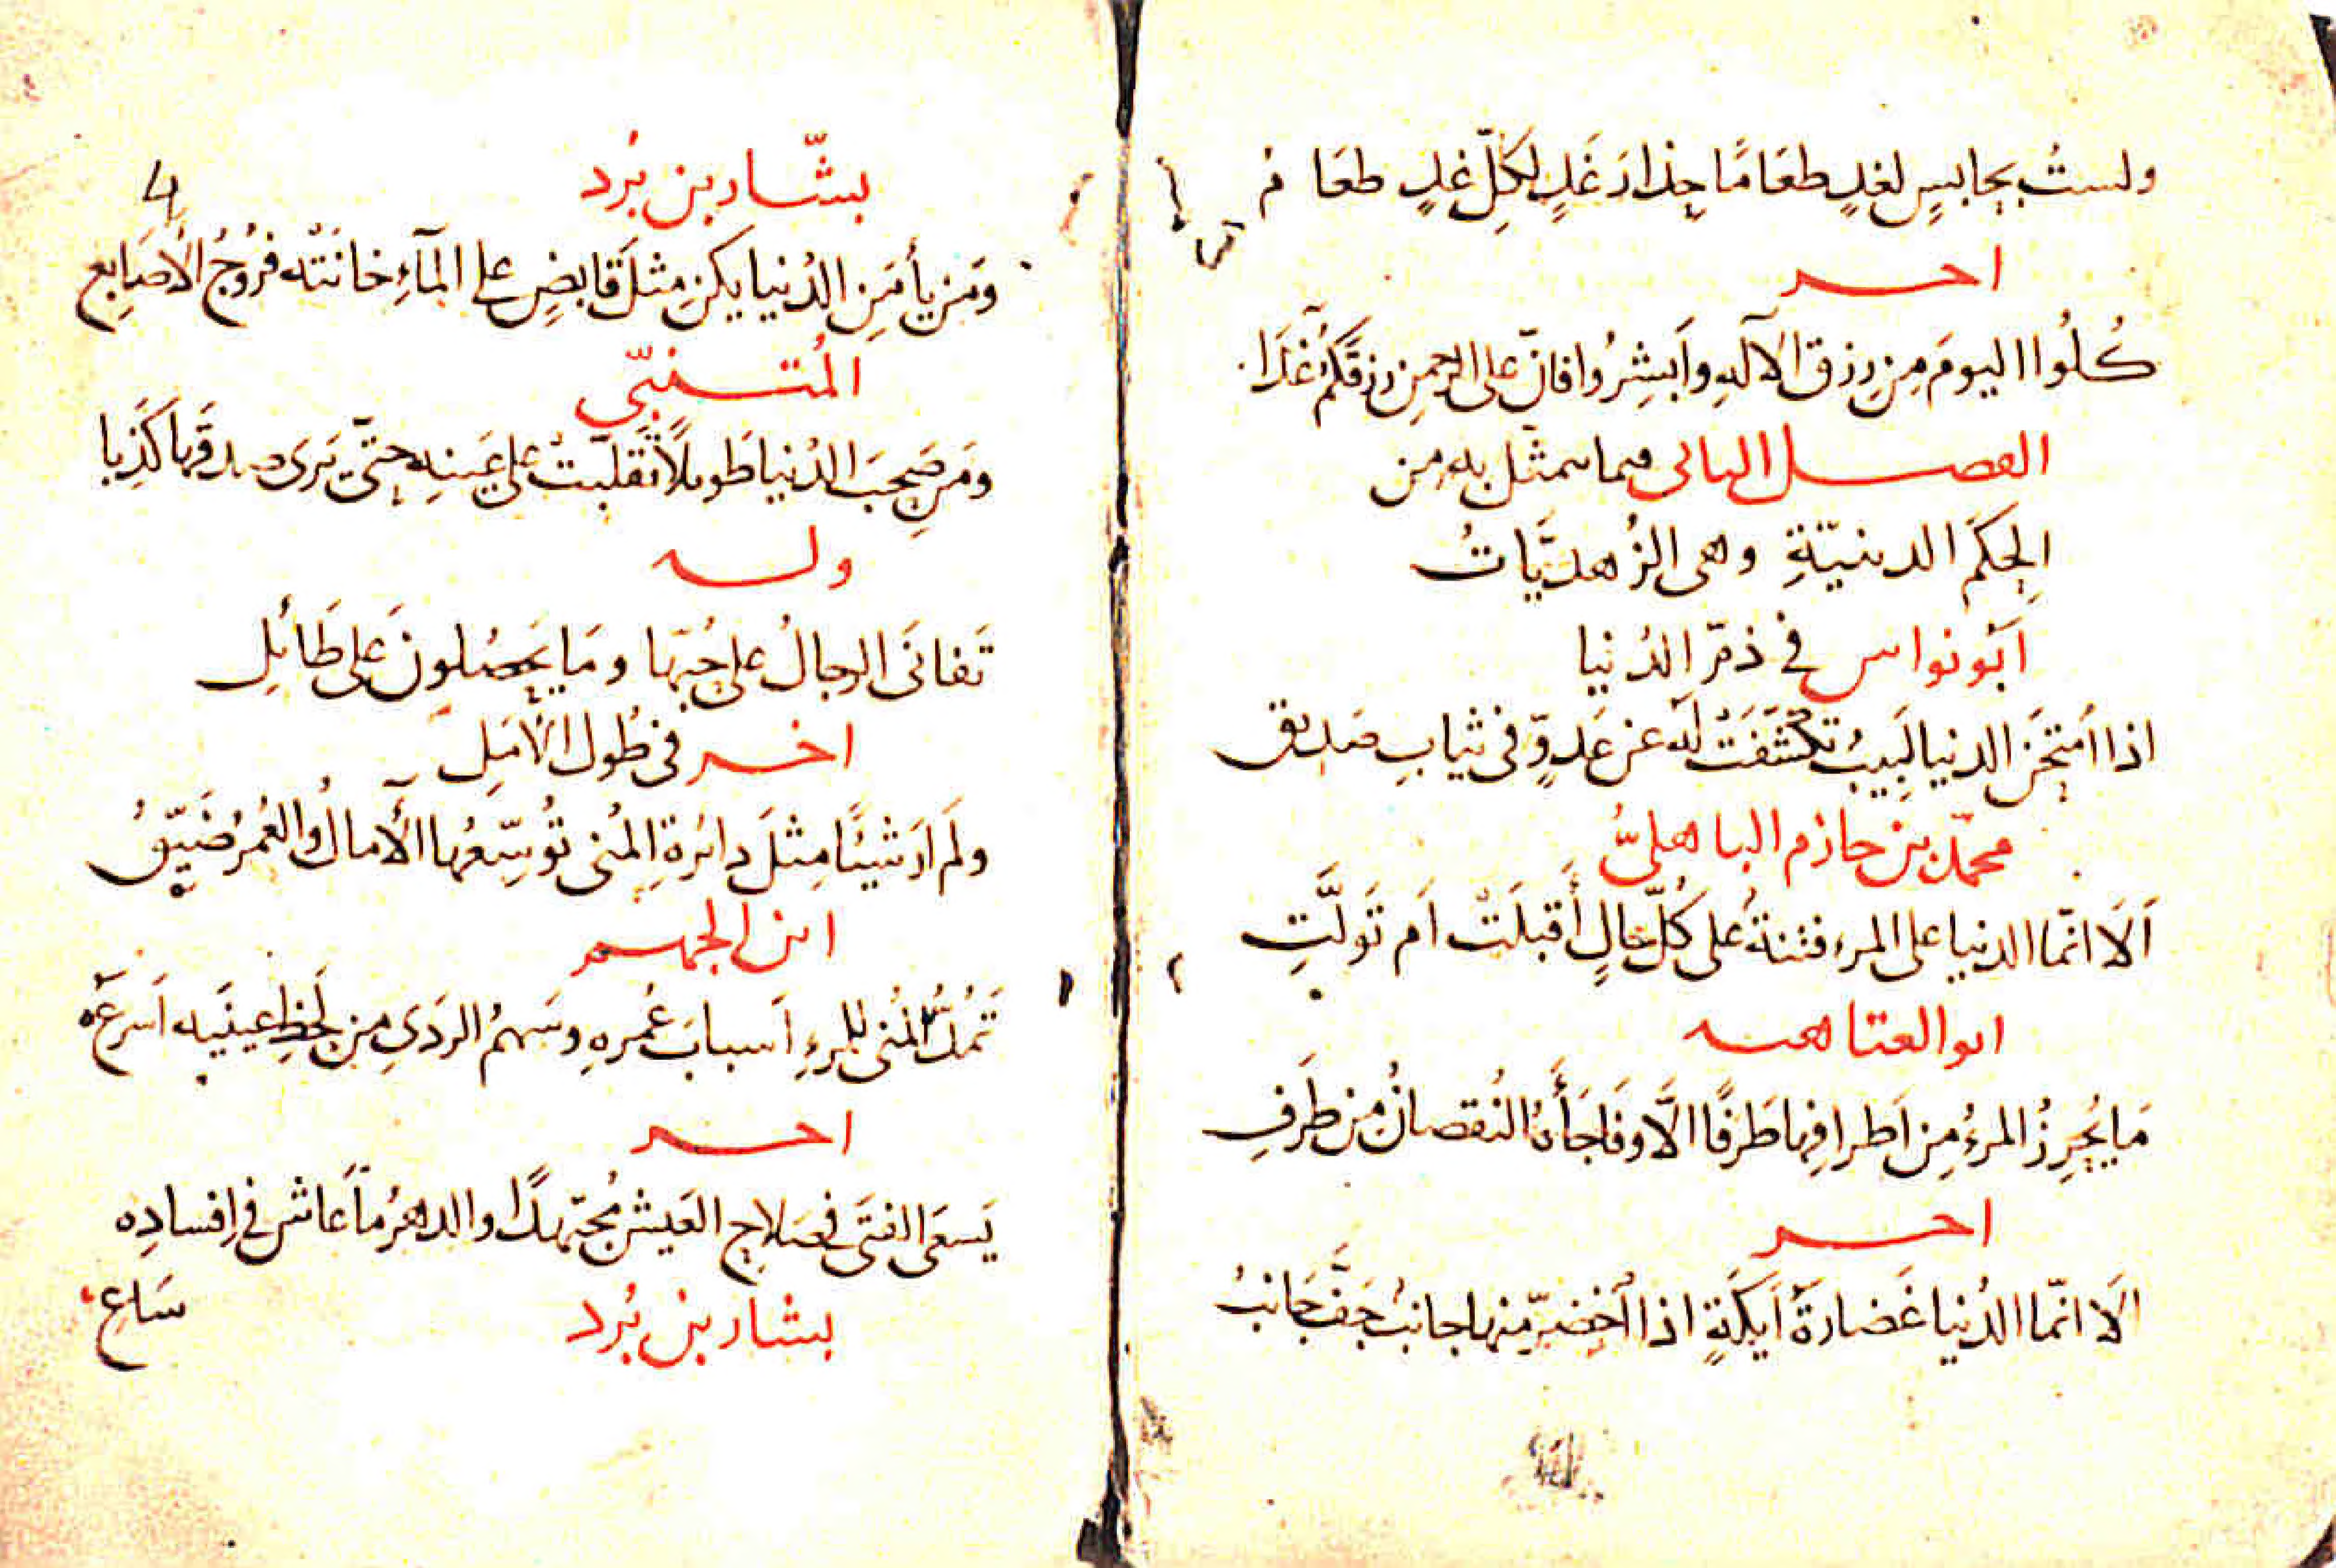 ولستُ بحابسٍ لغدٍ طعَامًا حِذارَ غَدٍ لِكلِّ غدٍ طعَامُ
اخر
كُلُوا اليومَ مِن رزق الآلهِ وأبشِرُوا فانّ على الرحمنِ رزقَكُم غَدَا
الفصل الثانى فيما يتمثل به من
الحِكَم الدينيّةِ وهى الزُهديَّاتُ
أبو نواس في ذمّ الدُنيا
اذا امتحَنَ الدنيا لَبيبٌ تكشّفَتْ لَه عن عَدوٍّ فى ثيابِ صَديق
محمّد بن حازم الباهلىُّ
اَلَا انّما الدنيا على المرء فتنةٌ على كُلّ حالٍ أَقبلَتْ اَم تَولَّتِ
ابو العتاهيه
مَا يُحرِزُ المرءُ مِن اَطرافِها طَرفًا الَّا وفَاجَأَهُ النُقصانُ من طَرَفِ
اخر
اَلَا انّما الدُنيا غَضارَةُ اَيكَةٍ اذا اخْضرّ مِنها جانبٌ جَفَّ جَانبُ
4
بشّار بن بُرد
وَمَن يأمَنِ الدُنيا يكن مِثلَ قابضٍ على المآءِ خانَتْه فُرُوجُ الأَصَابِع
المُتنبّي
ومَن صَحِبَ الدُنيا طَويلًا تَقلّبَتْ على عَينِهِ حتّى يَرى صدقَها كَذِبا
وله
تَفانَى الرجالُ على حُبّها ومَا يَحصُلونَ عَلى طَائلِ
اخر فى طُول الاَمَلِ
ولَم ارَ شيئًا مِثلَ دائرةِ المُنى تُوسّعُها الآمالُ والعُمرُ ضَيّقُ
ابن الجهم
تَمُدُّ المُنى للمرءِ اَسبابَ عُمرِهِ وسَهمُ الردَى مِن لَحظِ عينَيه اَسرعُ
اخر
يَسعَى الفتَى فى صَلاحِ العَيش مُجتهدًا والدهرُ مَا عَاش فى اِفسادِه
بشار بن بُرد
سَاعِ